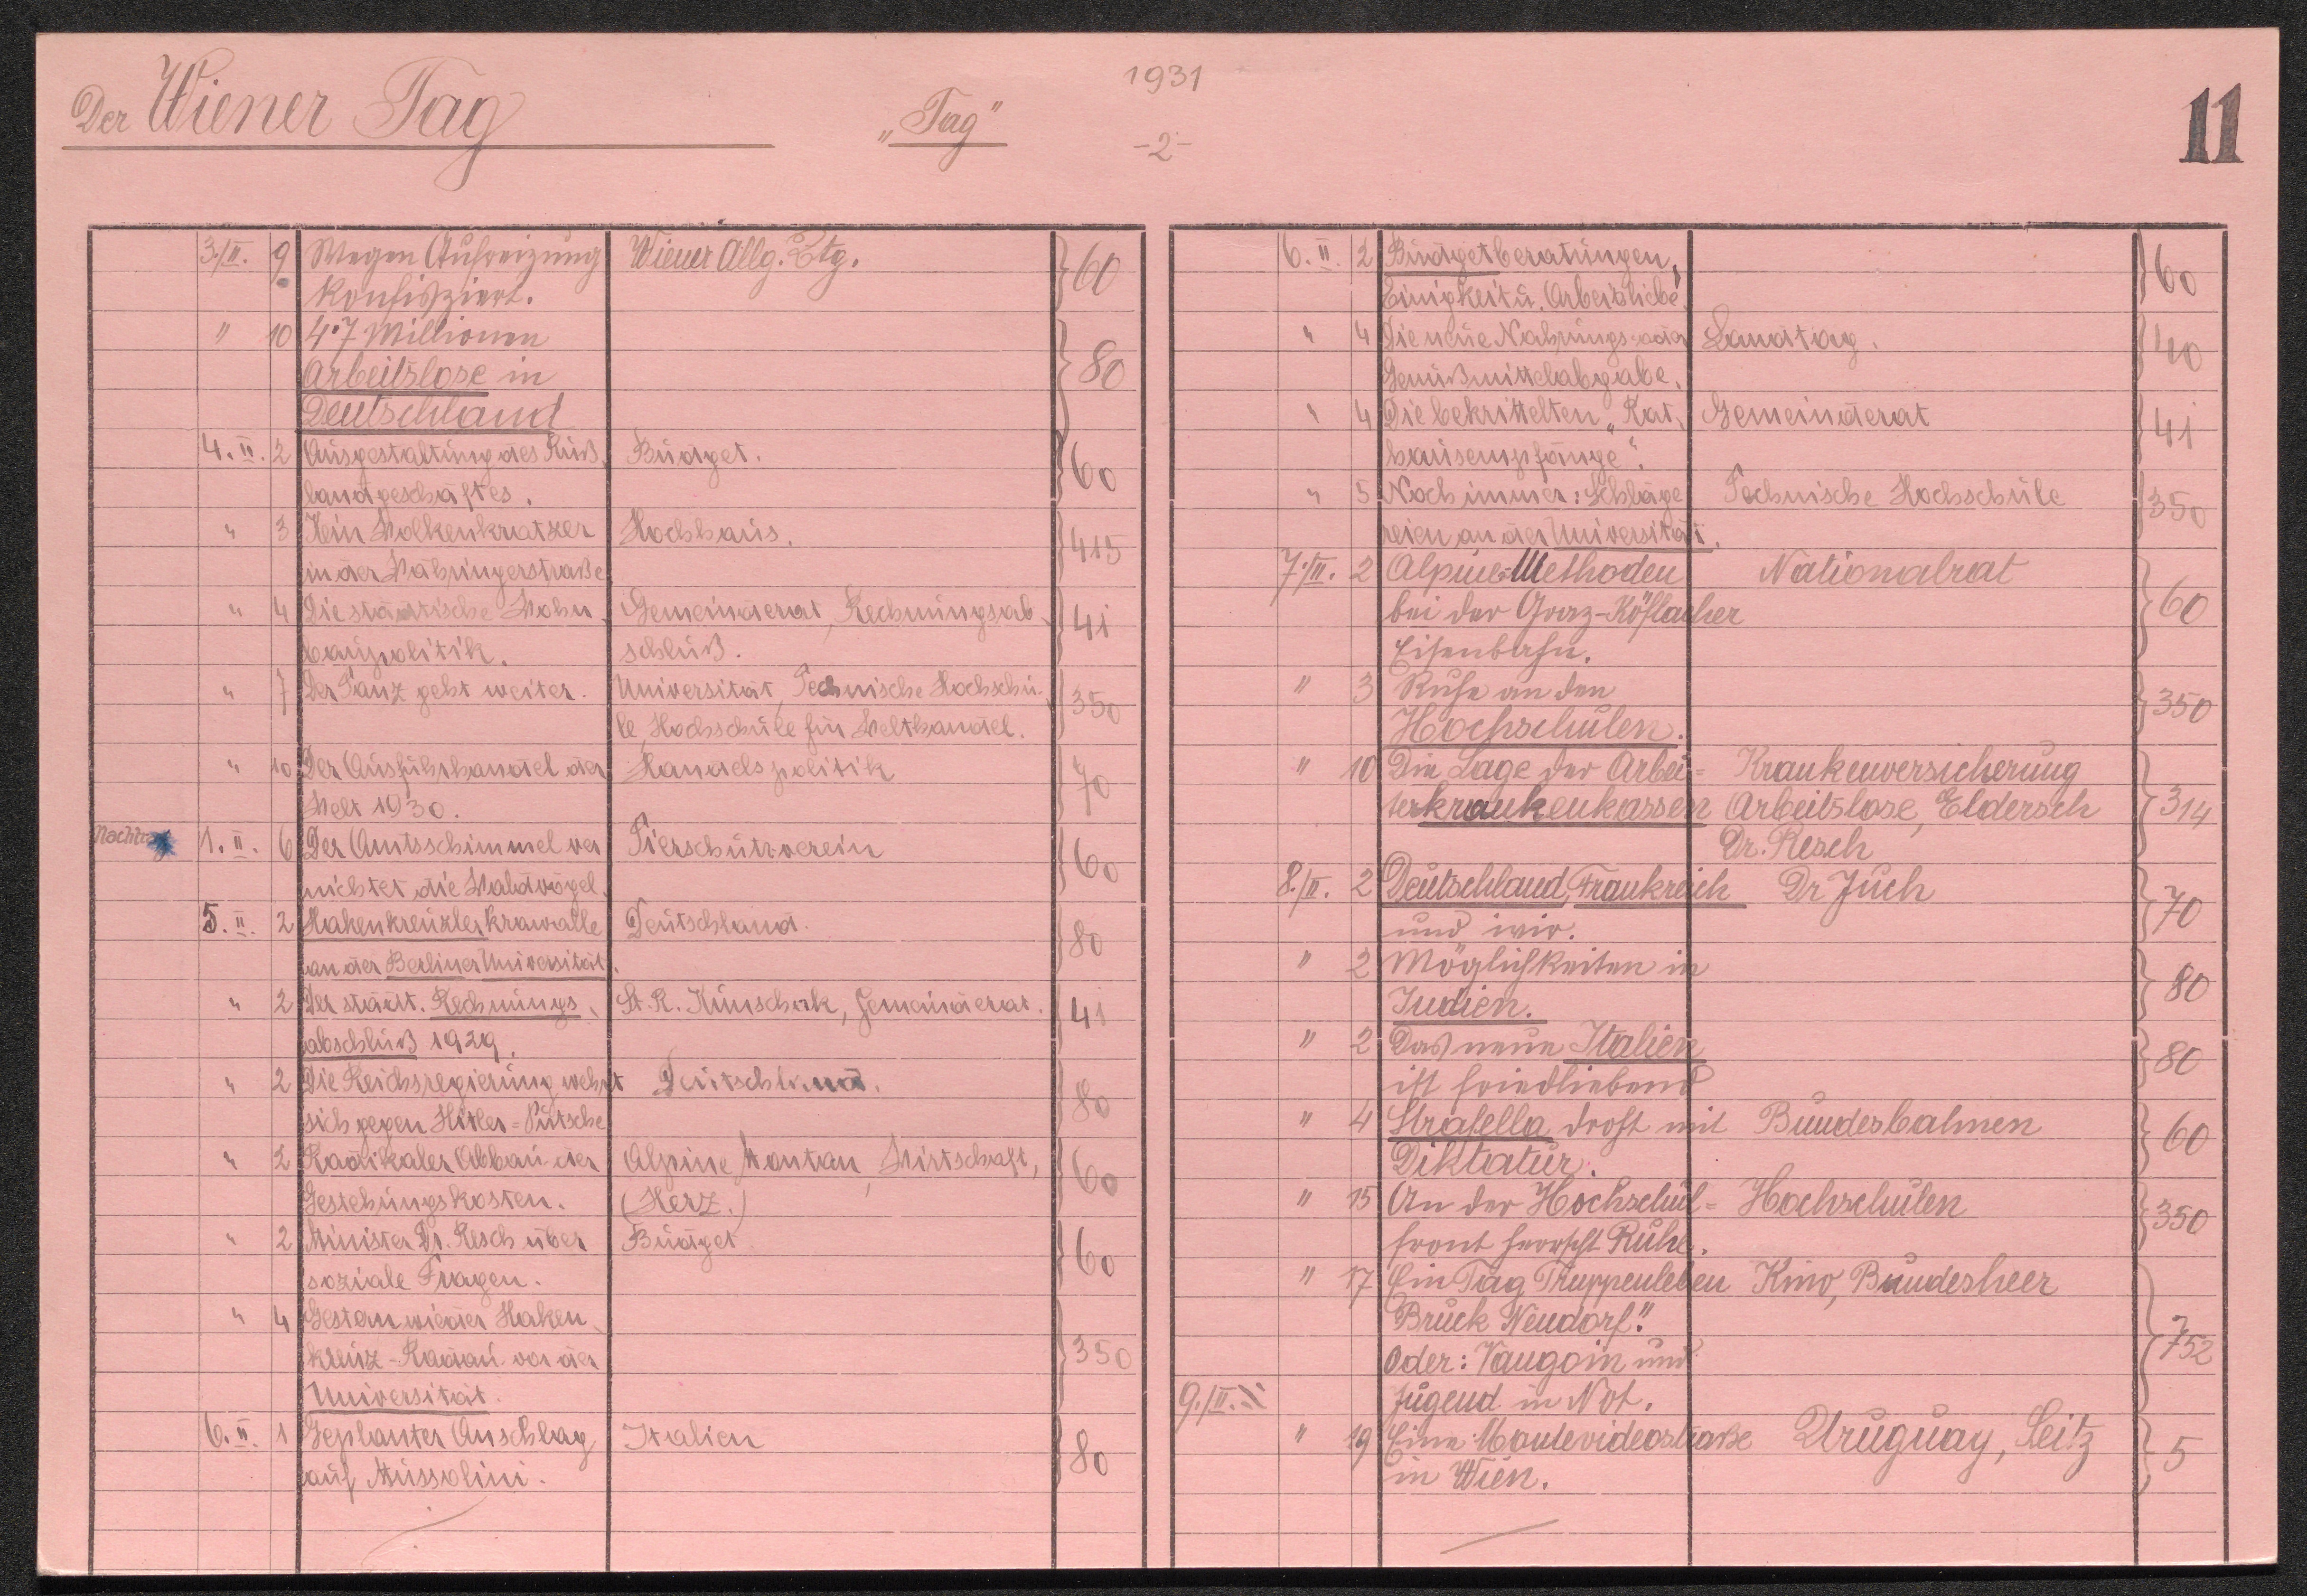 Der Wiener Tag
"Tag"
1931
-2-
11
3./II. 9 Wegen Aufreizung Wiener Allg. Ztg. 60
konfisziert.
" 10 4·7 Millionen 80
Arbeitslose in
Deutschland
4. II. 2 Ausgestaltung des Ruß- Budget. 60
landgeschäftes.
" 3 Kein Wolkenkratzer Hochhaus. 415
in der Währingerstraße
" 4 Die städtische Wohn- Gemeinderat, Rechnungsab- 41
baupolitik. schluß.
" 7 Der Tanz geht weiter. Universität, Technische Hochschu- 350
le, Hochschule für Welthandel.
" 10 Der Ausfuhrhandel der Handelspolitik 70
Welt 1930.
Nachtrag 1. II. 6 Der Amtsschimmel ver- Tierschutzverein 60
nichtet die Waldvögel.
5. II. 2 Hakenkreuzlerkrawalle Deutschland. 80
an der Berliner Universität.
" 2 Der städt. Rechnungs- St. R. Kunschak, Gemeinderat. 41
abschluß 1929.
" 2 Die Reichsregierung wehrt Deutschland. 80
sich gegen Hitler=Putsche
" 2 Radikaler Abbau der Alpine Montan, Wirtschaft, 60
Gestehungskosten. (Herz.)
" 2 Minister Dr. Resch über Budget 60
soziale Fragen.
" 4 Gestern wieder Haken- 350
kreuz-Radau vor der
Universität.
6. II. 1 Geplanter Anschlag Italien 80
auf Mussolini.
6. II. 2 Budgetberatungen, 60
Einigkeit u. Arbeitsliebe"
" 4 Die neue Nahrungs- oder Landtag. 40
Genußmittelabgabe.
" 4 Die bekrittelten "Rat- Gemeinderat 41
hausempfänge".
" 5 Noch immer: Schläge- Technische Hochschule 350
reien an der Universität.
7./II. 2 Alpine-Methoden Nationalrat 60
bei der Graz-Köflacher
Eisenbahn.
" 3 Ruhe an den 350
Hochschulen.
" 10 Die Lage der Arbei= Krankenversicherung 314
terkrankenkassen Arbeitslose, Eldersch
Dr. Resch
8./II. 2 Deutschland, Frankreich Dr Juch 70
und wir.
" 2 Möglichkeiten in 80
Indien.
" 2 Das neue Italien 80
ist friedliebend
" 4 Strafella droht mit Bundesbahnen 60
Diktatur.
" 15 An der Hochschul= Hochschulen 350
front herrscht Ruhe.
" 17 Ein Tag Truppenleben Kino, Bundesheer 752
Bruck Neudorf".
Oder: Vaugoin und
9./II. Jugend in Not.
" 19 Eine Montevideostraße Uruguay, Seitz 5
in Wien.